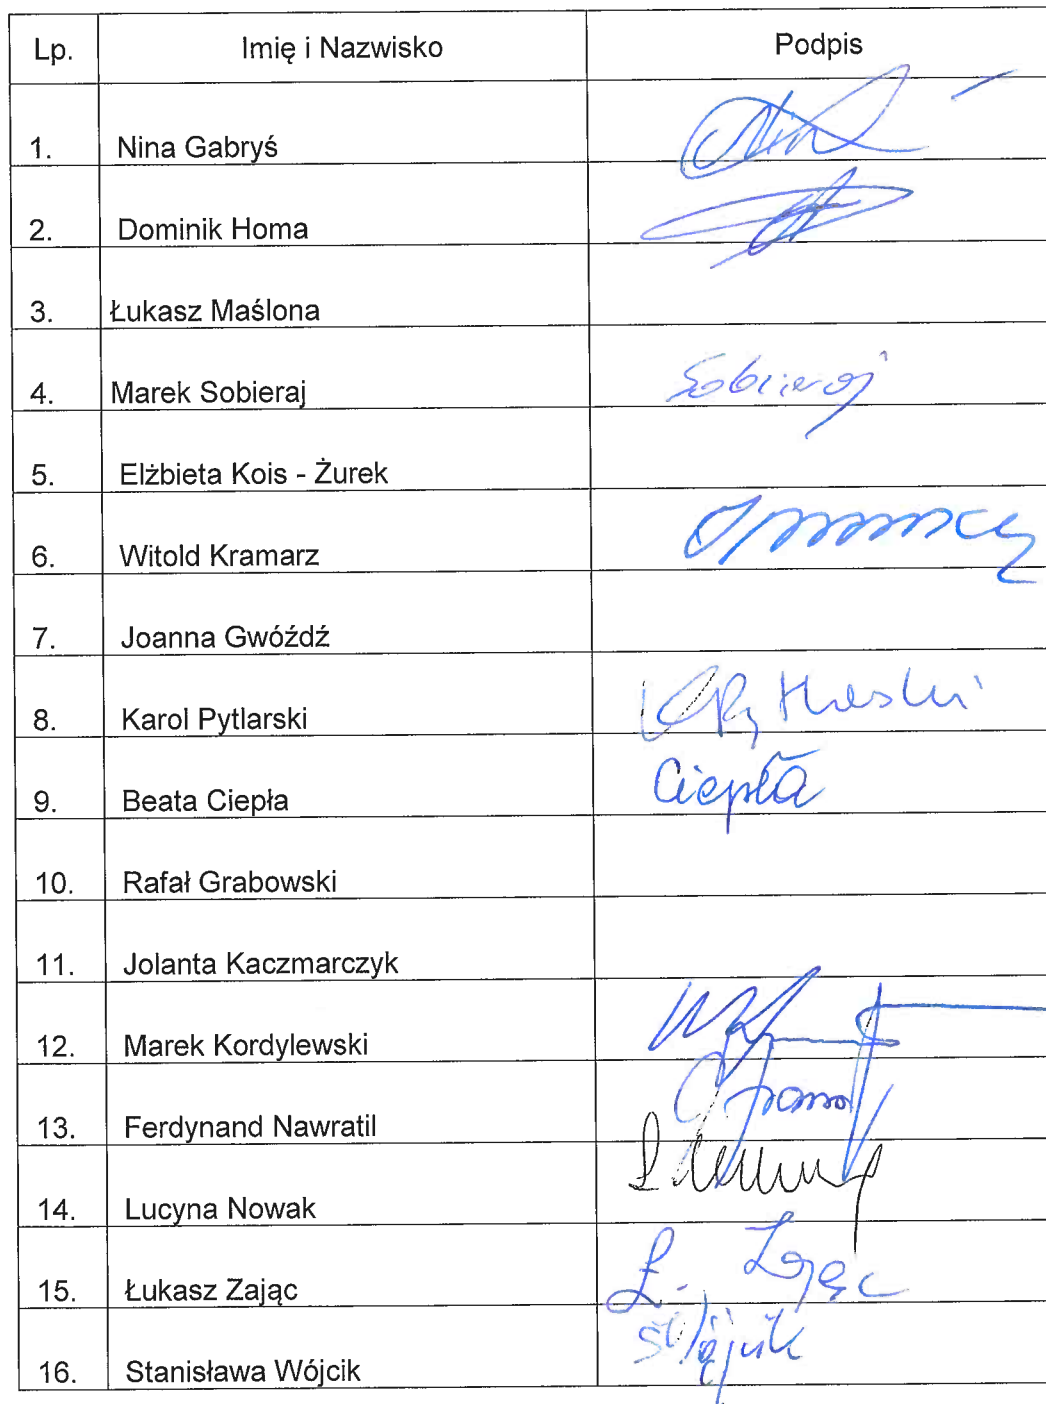 Lp. Imię i Nazwisko Podpis
1. Nina Gabryś
2. Dominik Homa
3. Łukasz Maślona
4. Marek Sobieraj Sobieraj
5. Elżbieta Kois - Żurek
6. Witold Kramarz
7. Joanna Gwóźdź
8. Karol Pytlarski
9. Beata Ciepła Ciepła
10. Rafał Grabowski
11. Jolanta Kaczmarczyk
12. Marek Kordylewski
13. Ferdynand Nawratil
14. Lucyna Nowak
15. Łukasz Zając Ł. Zając
16. Stanisława Wójcik